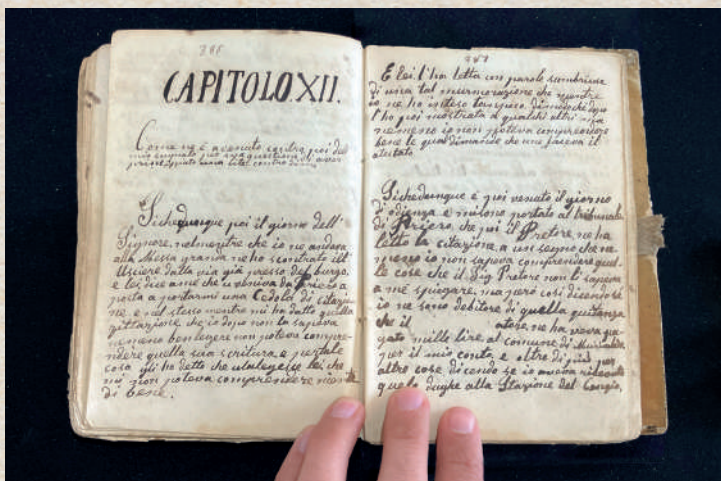 CAPITOLO.XII.
Come ne è avenuto contro poi del
mio cugnato per sua questione di aver
principiato una lite contro
Sichedunque poi il giorno dell'
Signore, nelmentre che io ne andava
alla Messa granda ne ho scontrato ill'
Usciere dalla via già presso del burgo,
e lei dice ame che ne veniva da Priero a
posta a portarmi una Cedola di citazio-
ne, e nel stesso mentre mi ha datto quella
cittazione che io dopo non la sapeva
nemeno ben legere non poteva compre-
ndere quella sua scritura, e pertale
cosa gli ho detto che la legesse lei che
mi non poteva comprendere niente
di bene.
E lei l'ha letta con parole
di una tal murmorazione che mentre
io ne ho inteso tampoco, dimodochè dopo
l'ho poi mostrata a qualchi altri ma
nemeno io non poteva comprendere
bene le qual dimande che une faceva il
Sichedunque è poi venuto il giorno
di odienza e mi sono portato al tribunale
di Priero che poi il Pretore ne ha
letto la citazione, a un segno che ne-
meno io non sapeva comprendere quel-
le cose che il Sig Pretore non li sapeva
a me spiegare, ma però così dicendo se
io ne sono debitore di quella quitanza
che il atore, ne ha veva pa-
gato mille lire al comune di
per il mio conto, e oltre di più per
altre cose, dicendo se io aveva
quelo dughe alla Stazione del